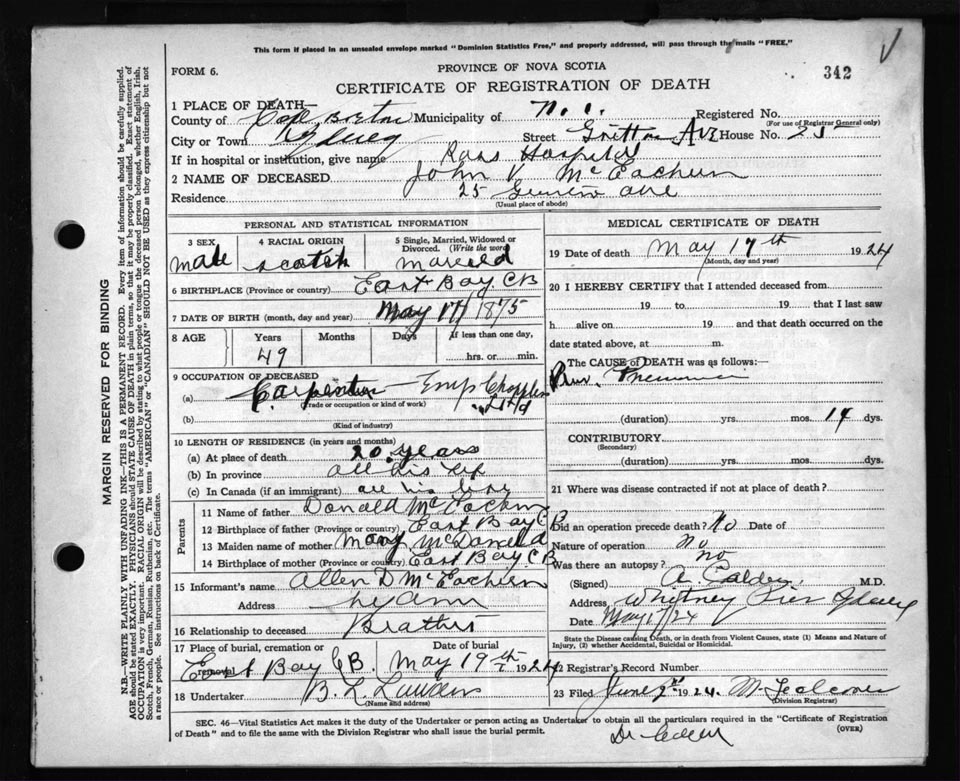 This form if placed in an unsealed envelope marked "Dominion Statistics Free," and properly addressed, will pass through the mails "FREE."
FORM 6.
PROVINCE OF NOVA SCOTIA
342
CERTIFICATE OF REGISTRATION OF DEATH
1 PLACE OF DEATH—
County of Cape Breton Municipality of No. 1. Registered No.
(For use of Registrar General only)
City or Town Sydney Street Ave House No. 25
If in hospital or institution, give name Hospital
2 NAME OF DECEASED John V McEachern
Residence 25 ave
(Usual place of abode)
PERSONAL AND STATISTICAL INFORMATION
3 SEX male
4 RACIAL ORIGIN scotch
5 Single, Married, Widowed or Divorced. (Write the word)
6 BIRTHPLACE (Province or country) East Bay CB
7 DATE OF BIRTH (month, day and year) May 17 1875
8 AGE Years 49 Months Days If less than one day, hrs. or min.
9 OCCUPATION OF DECEASED
(a) Carpenter Emp Ltd
(Trade or occupation or kind of work)
(b)
(Kind of industry)
10 LENGTH OF RESIDENCE (in years and months)
(a) At place of death 20 years
(b) In province all his
(c) In Canada (if an immigrant) all his
Parents
11 Name of father Donald McEachern
12 Birthplace of father (Province or country) East Bay C B
13 Maiden name of mother Mary McDonald
14 Birthplace of mother (Province or country) East Bay C. B
15 Informant's name Allen D McEachern
Address
16 Relationship to deceased
17 Place of burial, cremation or removal Date of burial
East Bay CB. May 19th 1924
18 Undertaker B. L.
(Name and address)
MEDICAL CERTIFICATE OF DEATH
19 Date of death May 17th 1924
(Month, day and year)
20 I HEREBY CERTIFY that I attended deceased from
19 to 19 that I last saw
h alive on 19 and that death occurred on the
date stated above, at m.
The CAUSE OF DEATH was as follows:
Pneumonia
(duration) yrs. mos. 14 dys.
CONTRIBUTORY
(Secondary)
(duration) yrs. mos. dys.
21 Where was disease contracted if not at place of death?
Did an operation precede death? No Date of
Nature of operation no
Was there an autopsy? no
(Signed) A. Calder M.D.
Address Whitney Pier Sydney
Date May 17/24
State the Disease causing Death, or in death from Violent Causes, state (1) Means and Nature of Injury, (2) whether Accidental, Suicidal or Homicidal.
22 Registrar's Record Number
23 Filed June 2nd 1924.
(Division Registrar)
SEC. 46—Vital Statistics Act makes it the duty of the Undertaker or person acting as Undertaker to obtain all the particulars required in the "Certificate of Registration
of Death" and to file the same with the Division Registrar who shall issue the burial permit.
(OVER)
Dr Calder
MARGIN RESERVED FOR BINDING
N.B.—WRITE PLAINLY, WITH UNFADING INK—THIS IS A PERMANENT RECORD. Every item of information should be carefully supplied.
AGE should be stated EXACTLY. PHYSICIANS should STATE CAUSE OF DEATH in plain terms, so that it may be properly classified. Exact statement of
OCCUPATION is very important. RACIAL ORIGIN will be described by stating to what people or tongue the deceased person belonged, whether English, Irish,
Scotch, French, German, Russian, Ruthenian, etc. The terms "AMERICAN" or "CANADIAN" SHOULD NOT BE USED as they express citizenship but not
a race or people. See instructions on back of Certificate.